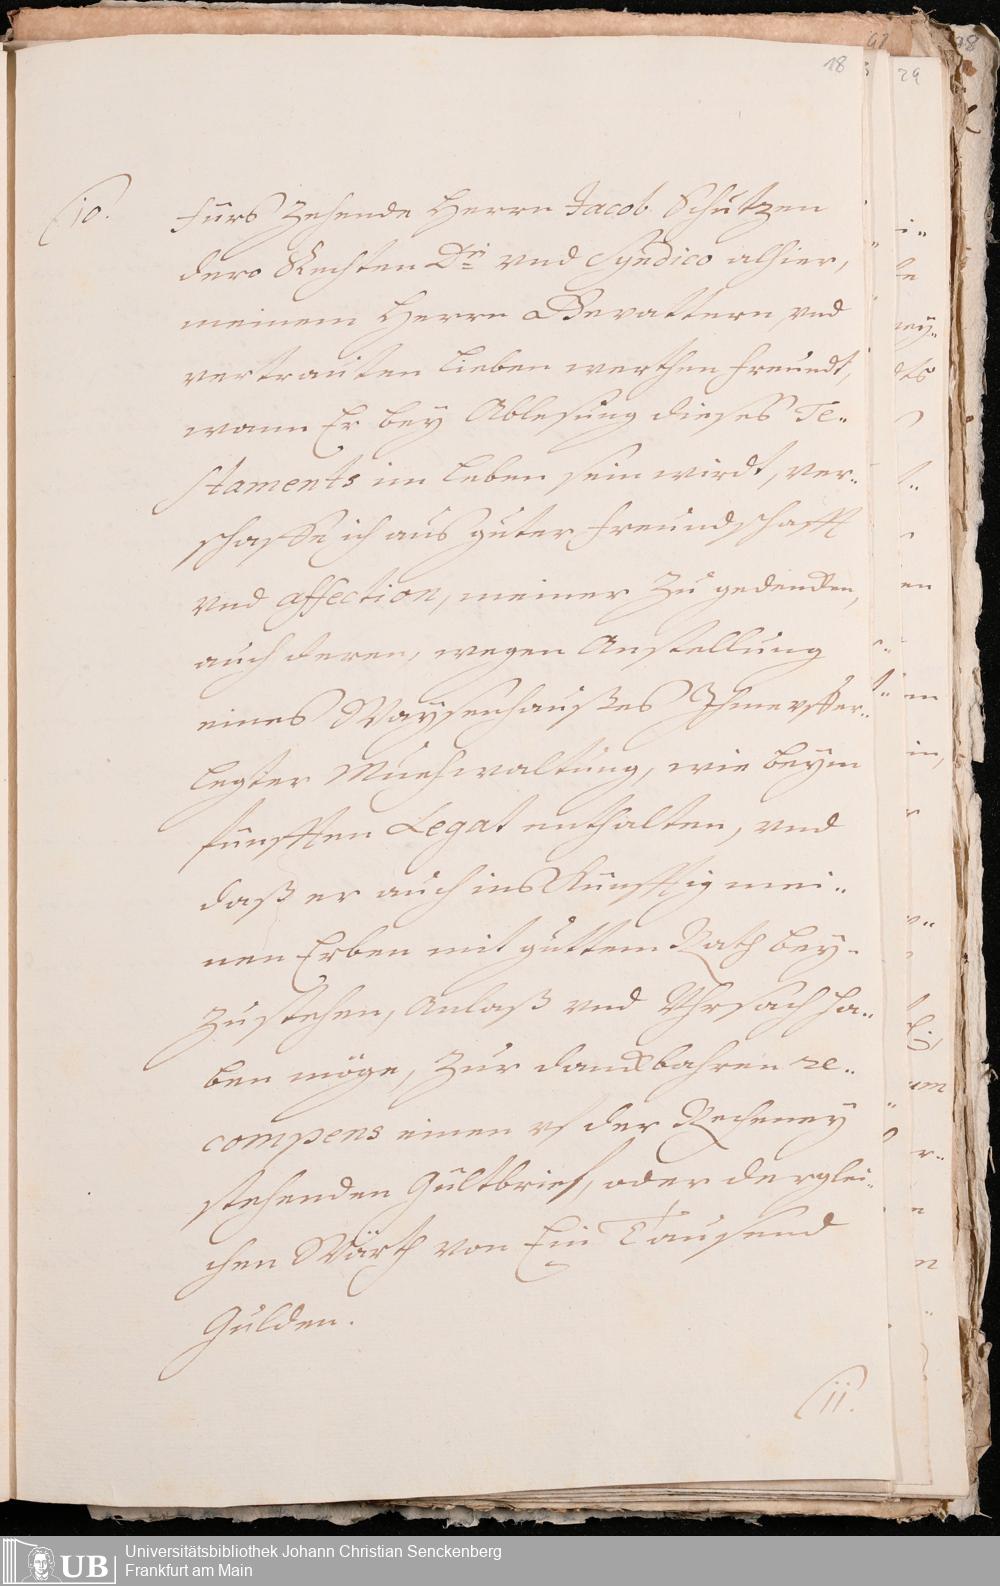 97
98
18
29
10.
Fürs Zehende Herrn Jacob Schützen
dero Rechten Dri vnd Syndico alhier,
meinem Herrn Gevattern, vnd
vertrauten lieben werthen Freundt,
wann Er bey Ablesung dieses Te-
staments im Leben sein wirdt, ver-
schaffe ich aus guter Freundschafft
vnd affection, meiner zu gedencken,
auch deren, wegen Anstellung
eines Waysenhaußes Ihme vffer-
legter Muehwaltung, wie beym
fünfften Legat enthalten, vnd
daß er auch ins Künfftig mei-
nen Erben mit guttem Rath bey-
zustehen, Anlaß vnd Vhrsach ha-
ben möge, zur danckbahren re-
compens einen vf der Recheney
stehenden Gültbrief, oder derglei-
chen Wärth von Ein Tausend
Gulden.
11.
UB
Universitätsbibliothek Johann Christian Senckenberg
Frankfurt am Main